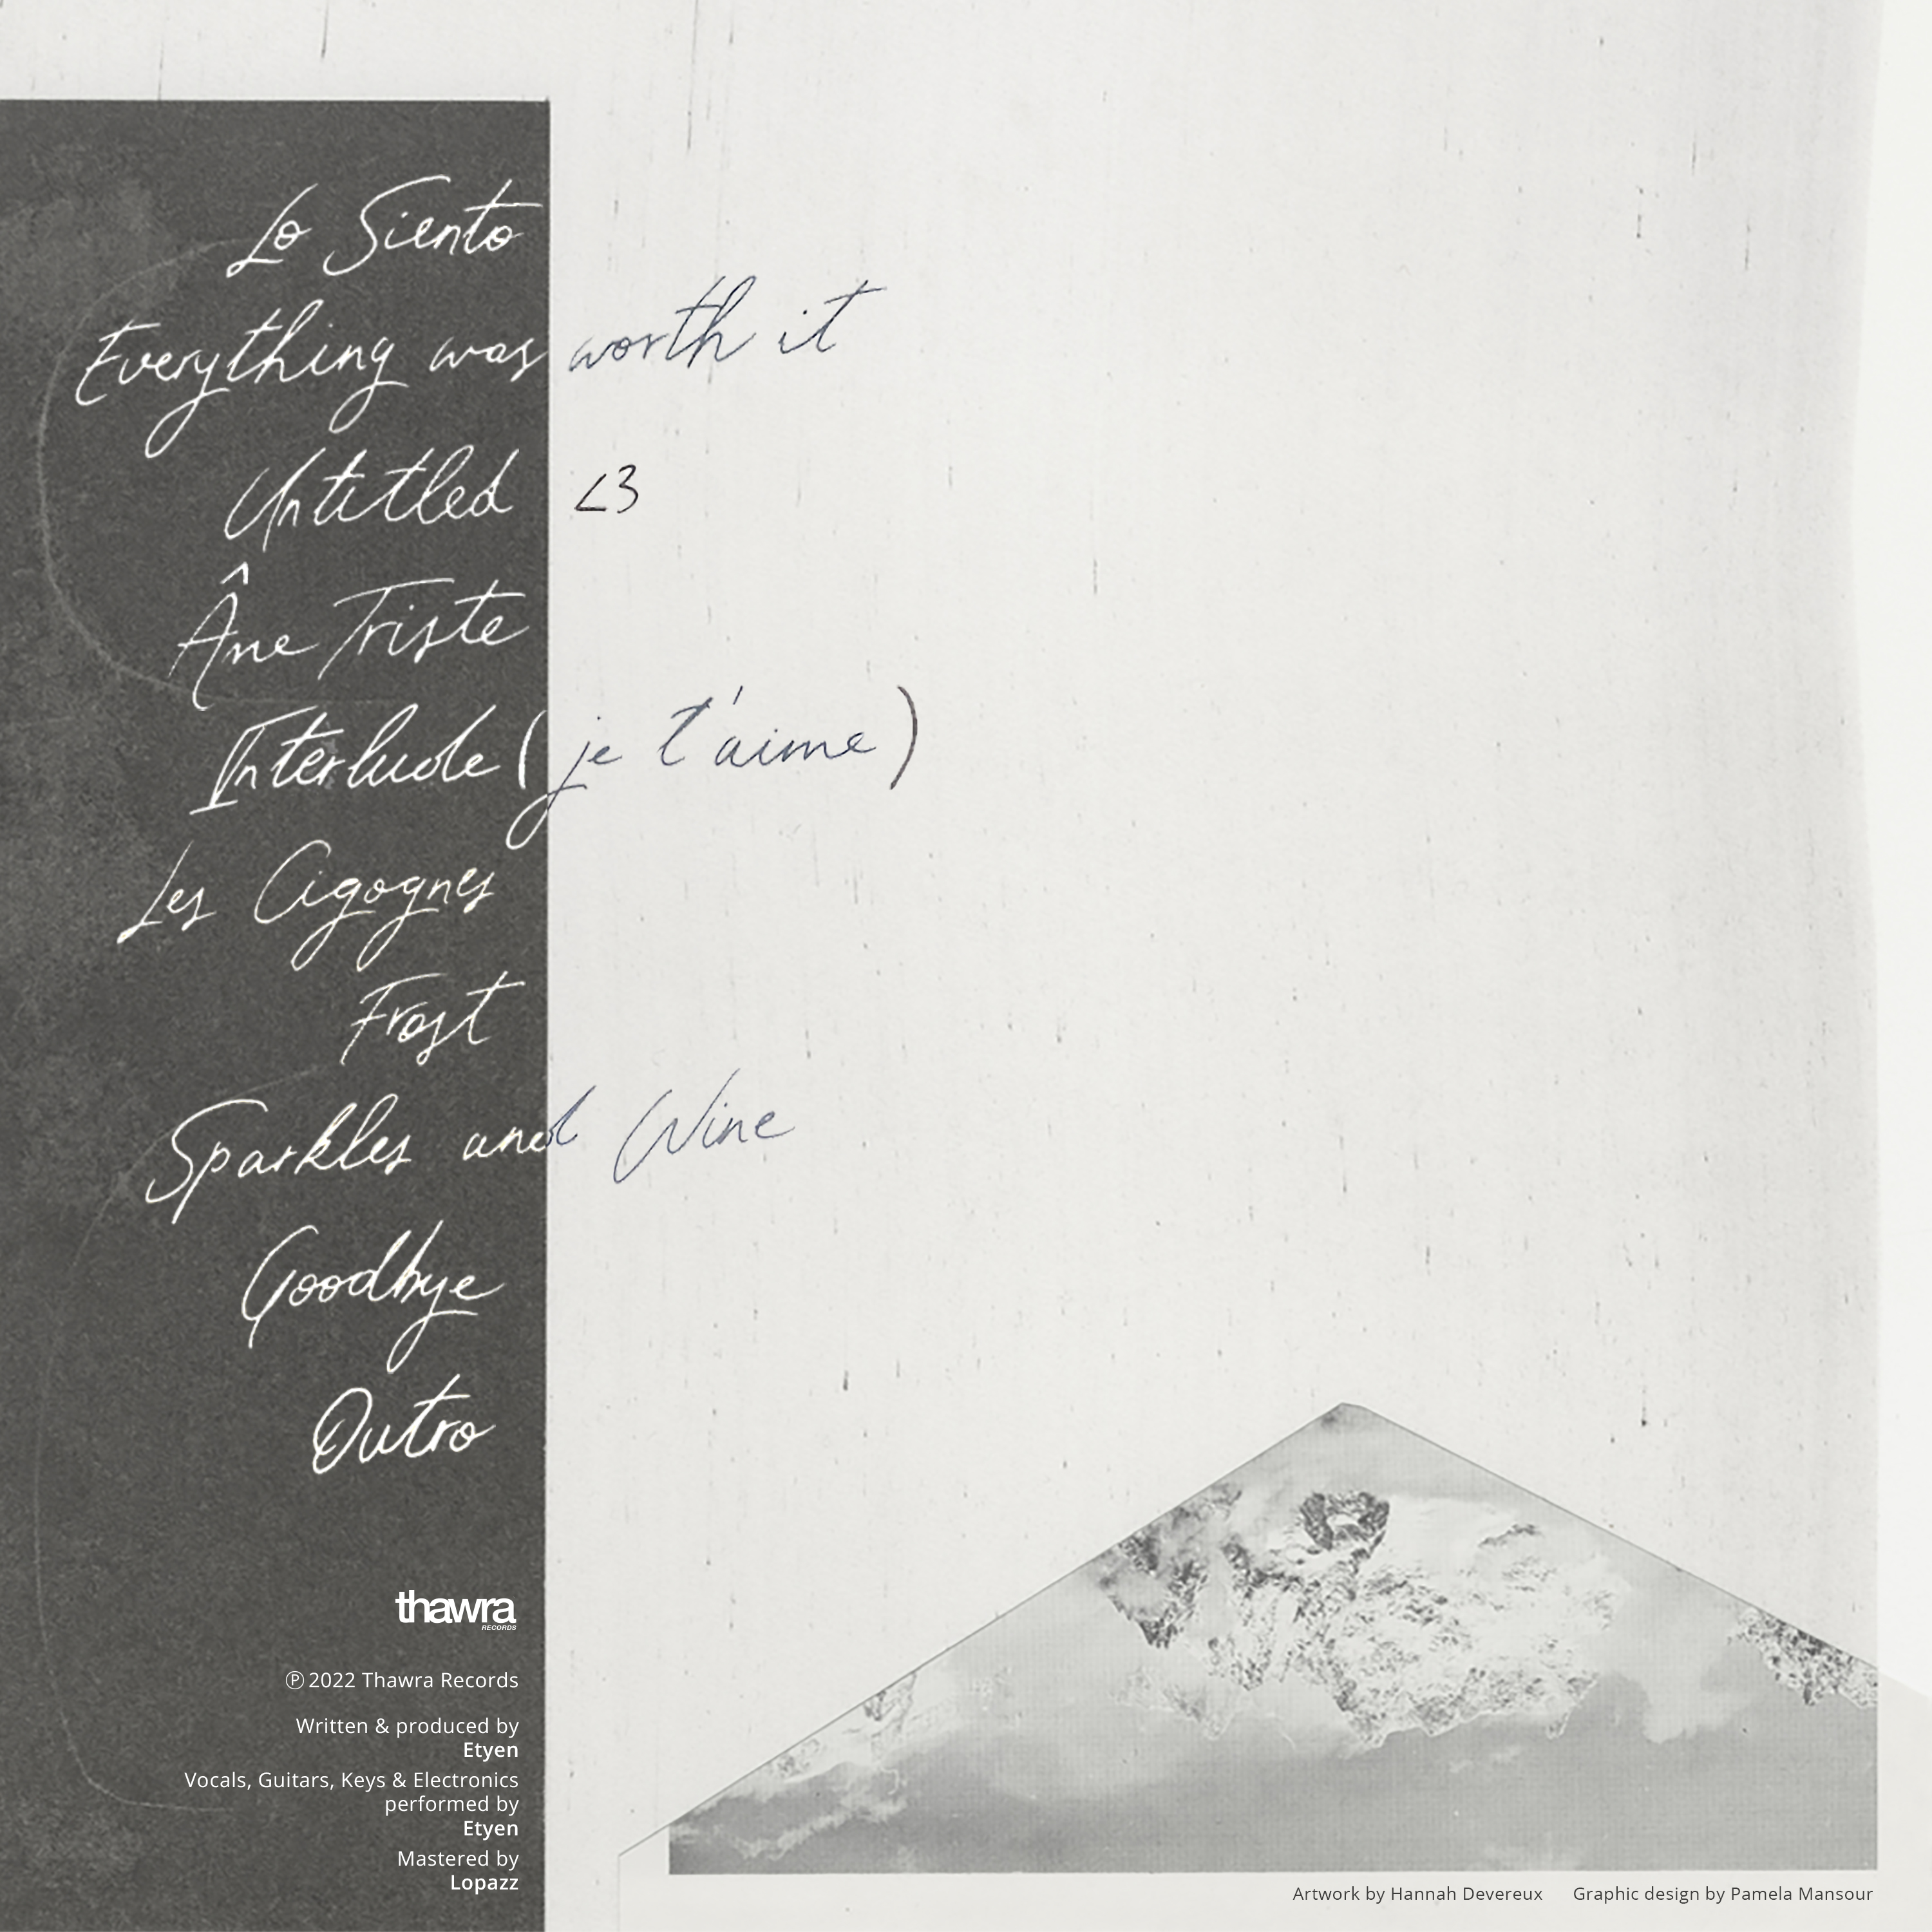 Lo Siento
Everything was worth it
Untitled <3
Âne Triste
Interlude ( je t'aime )
Les Cigognes
Frost
Sparkles and Wine
Goodbye
Outro
thawra
RECORDS
℗ 2022 Thawra Records
Written & produced by
Etyen
Vocals, Guitars, Keys & Electronics
performed by
Etyen
Mastered by
Lopazz
Artwork by Hannah Devereux Graphic design by Pamela Mansour